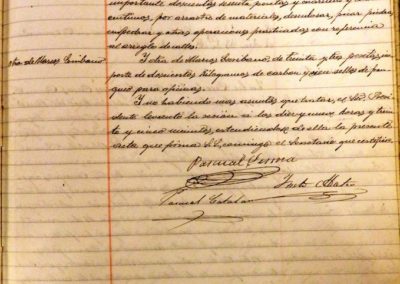 importante doscientas sesenta pesetas y noventa y
centimos, por arrastre de materiales, desmontar, picar piedra,
empedrar y otras operaciones practicadas con referencia
al arreglo de calles.
Otra de Marcos Escribano
Y otra de Marcos Escribano de treinta y tres pesetas, im
porte de doscientos kilogramos de carbon y cien sellos de fran
queo para oficinas.
Y no habiendo mas asuntos que tratar, el Sr. Presi
dente levantó la sesion a las diez y nueve horas y trein
ta y cinco minutos, extendiendose de ella la presente
acta que firma S.S. conmigo el Secretario que certifico.
Pascual Serna
Manuel Catalan